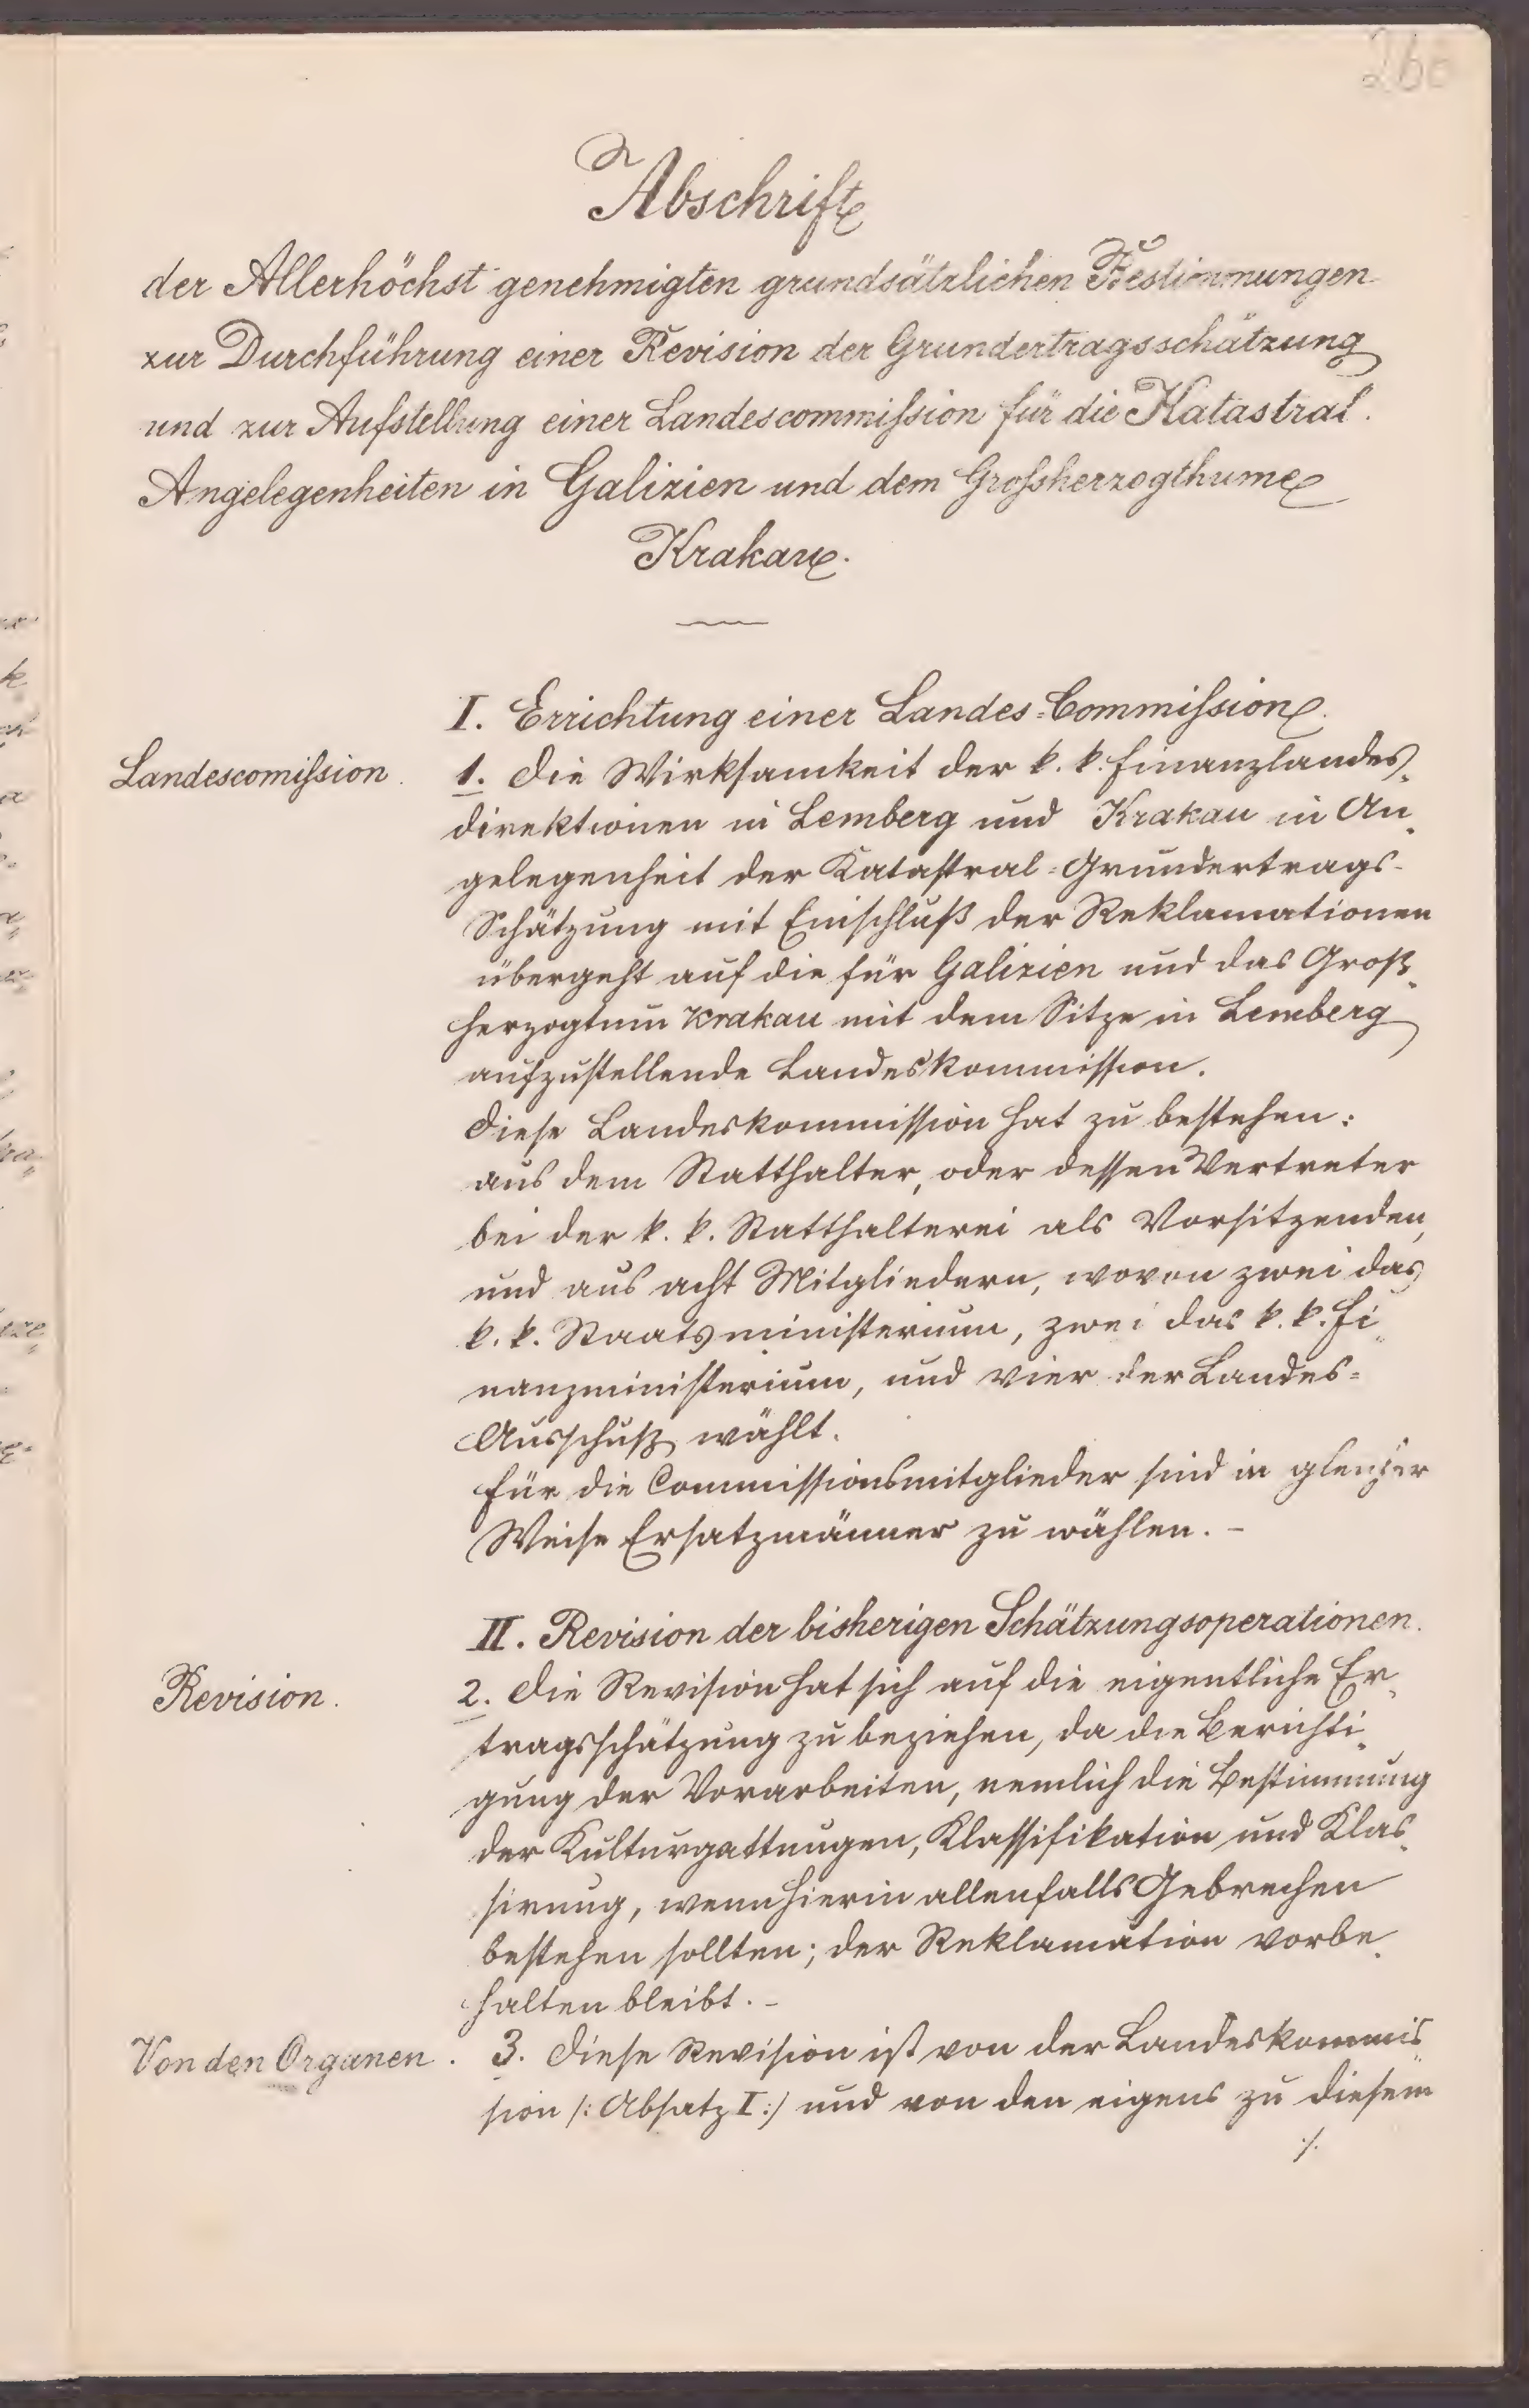 Abschrift
der Allerhöchst genehmigten grundsätzlichen Bestimmungen
zur Durchführung einer Revision der Grundertragsschätzung
und zur Aufstellung einer Landescommission für die Katastral-
Angelegenheiten in Galizien und dem Grossherzogthume
Krakau.
I. Errichtung einer Landes-Commission.
Landescomission.
1. Die Wirksamkeit der k. k. Finanzlandes-
direktionen in Lemberg und Krakau in An-
gelegenheit der Katastral-Grundertrags-
Schätzung mit Einschluß der Reklamationen
übergeht auf die für Galizien und das Groß-
herzogtum Krakau mit dem Sitze in Lemberg
aufzustellende Landeskommission.
Diese Landeskommission hat zu bestehen:
aus dem Statthalter, oder dessen Vertreter
bei der k. k. Statthalterei als Vorsitzenden,
und aus acht Mitgliedern, wovon zwei das
k. k. Staatsministerium, zwei das k. k. Fi-
nanzministerium, und vier der Landes-
Ausschuß wählt.
Für die Commissionsmitglieder sind in gleicher
Weise Ersatzmänner zu wählen. -
II. Revision der bisherigen Schätzungsoperationen.
Revision.
2. Die Revision hat sich auf die eigentliche Er-
tragsschätzung zu beziehen, da die Berichti-
gung der Vorarbeiten, nemlich die Bestimmung
der Kulturgattungen, Klassifikation und Klas-
sirung, wenn hierin allenfalls Gebrechen
bestehen sollten; der Reklamation vorbe-
halten bleibt. -
Von den Organen.
3. Diese Revision ist von der Landeskommis-
sion /: Absatz I :/ und von den eigens zu diesem
./.